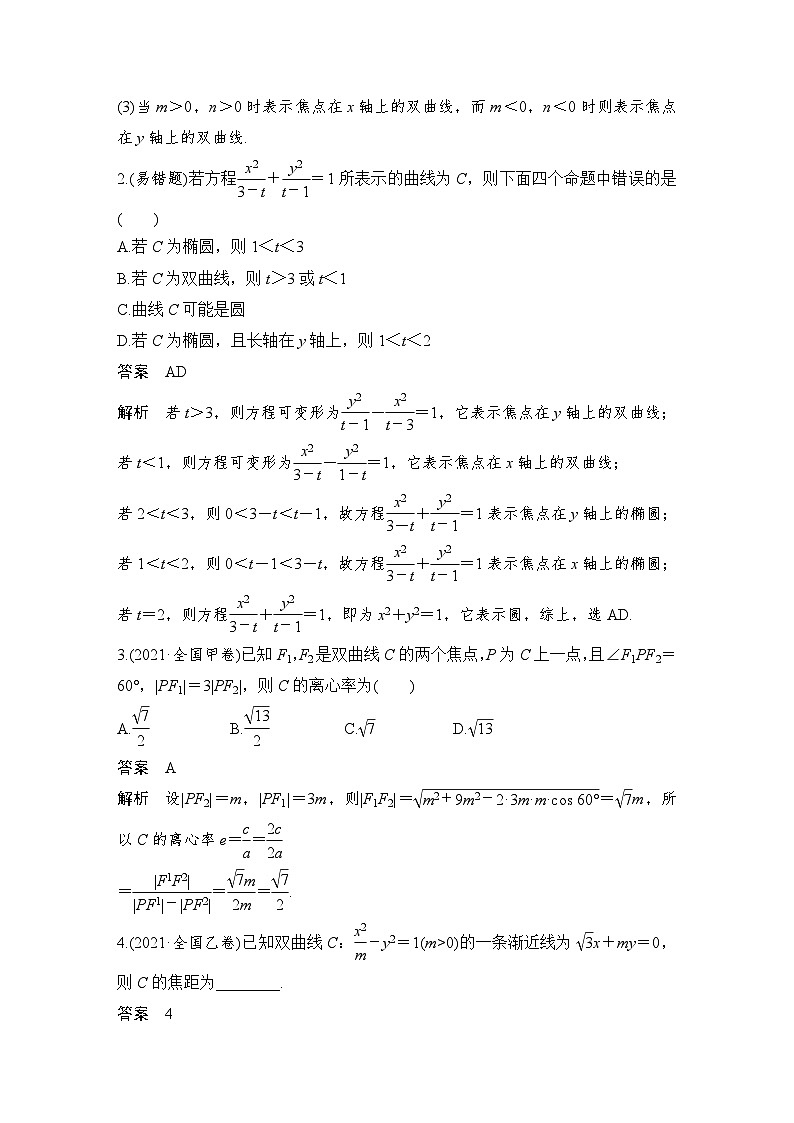 (3)当m＞0，n＞0时表示焦点在x轴上的双曲线，而m＜0，n＜0时则表示焦点
在y轴上的双曲线.
2.(易错题)若方程\frac{x2}{3－t}＋\frac{y2}{t－1}＝1所表示的曲线为C，则下面四个命题中错误的是
(　　)
A.若C为椭圆，则1＜t＜3
B.若C为双曲线，则t＞3或t＜1
C.曲线C可能是圆
D.若C为椭圆，且长轴在y轴上，则1＜t＜2
答案　AD
解析　若t＞3，则方程可变形为\frac{y2}{t－1}－\frac{x2}{t－3}＝1，它表示焦点在y轴上的双曲线；
若t＜1，则方程可变形为\frac{x2}{3－t}－\frac{y2}{1－t}＝1，它表示焦点在x轴上的双曲线；
若2＜t＜3，则0＜3－t＜t－1，故方程\frac{x2}{3－t}＋\frac{y2}{t－1}＝1表示焦点在y轴上的椭圆；
若1＜t＜2，则0＜t－1＜3－t，故方程\frac{x2}{3－t}＋\frac{y2}{t－1}＝1表示焦点在x轴上的椭圆；
若t＝2，则方程\frac{x2}{3－t}＋\frac{y2}{t－1}＝1，即为x2＋y2＝1，它表示圆，综上，选AD.
3.(2021·全国甲卷)已知F₁，F₂是双曲线C的两个焦点，P为C上一点，且∠F₁PF₂＝
60°，|PF₁|＝3|PF₂|，则C的离心率为(　　)
A.\frac{√7}{2}　B.\frac{√13}{2}　C.√7　D.√13
答案　A
解析　设|PF₂|＝m，|PF₁|＝3m，则|F₁F₂|＝\sqrt{m²＋9m²－2·3m·m·cos 60°}＝√7m，所
以C的离心率e＝\frac{c}{a}＝\frac{2c}{2a}
＝\frac{|F¹F²|}{|PF¹|－|PF²|}＝\frac{√7m}{2m}＝\frac{√7}{2}.
4.(2021·全国乙卷)已知双曲线C：\frac{x2}{m}－y²＝1(m>0)的一条渐近线为√3x＋my＝0，
则C的焦距为________.
答案　4